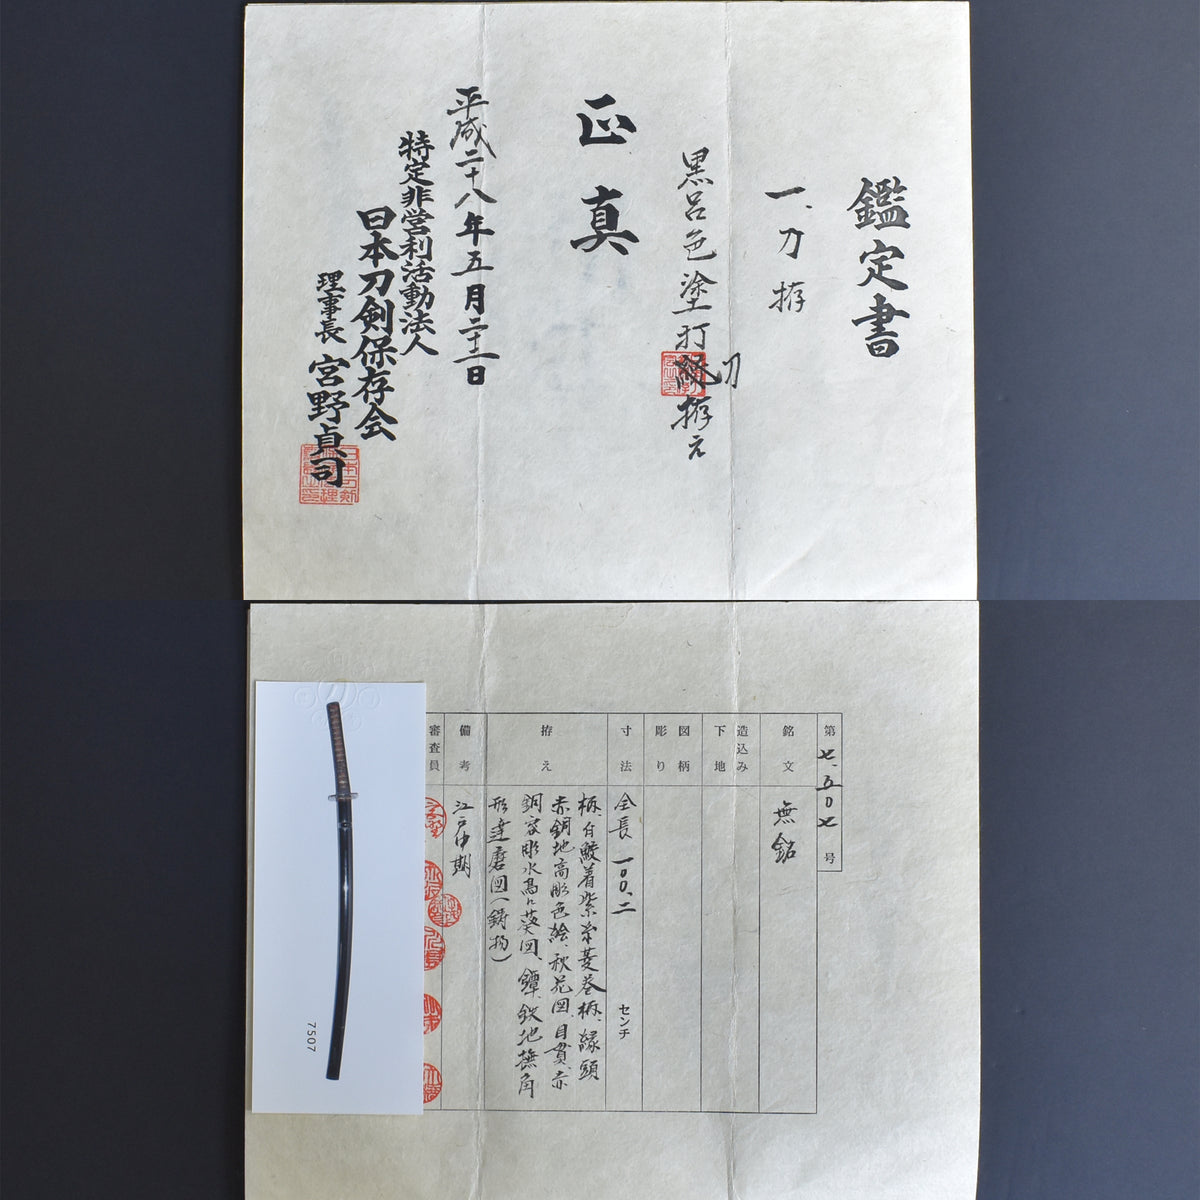 鑑定書
一、刀拵
黒呂色塗打刀拵え
正真
平成二十八年五月二十二日
特定非営利活動法人
日本刀剣保存会
理事長 宮野貞司
第七、五〇七号
銘文 無銘
造込み
下地
図柄
彫り
寸法 全長 一〇〇、二 センチ
拵え 柄、白鮫着紫糸菱巻柄、縁頭
赤銅地高彫色絵、秋花図、目貫、赤
銅容彫水葵図、鐔、鉄地撫角
形達磨図(鋳物)
備考 江戸中期
審査員
7507